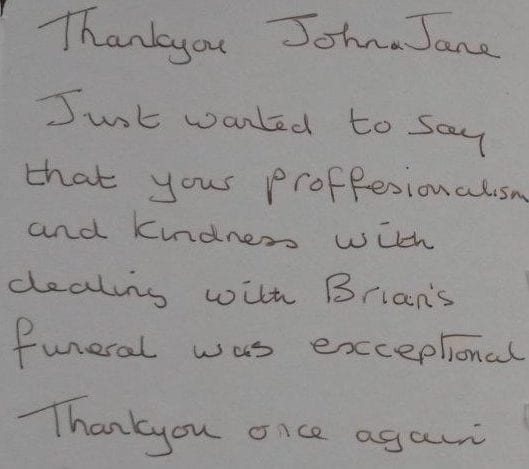 Thankyou John & Jane
Just wanted to say
that your proffesionalism
and kindness with
dealing with Brian's
funeral was exceptional
Thankyou once again